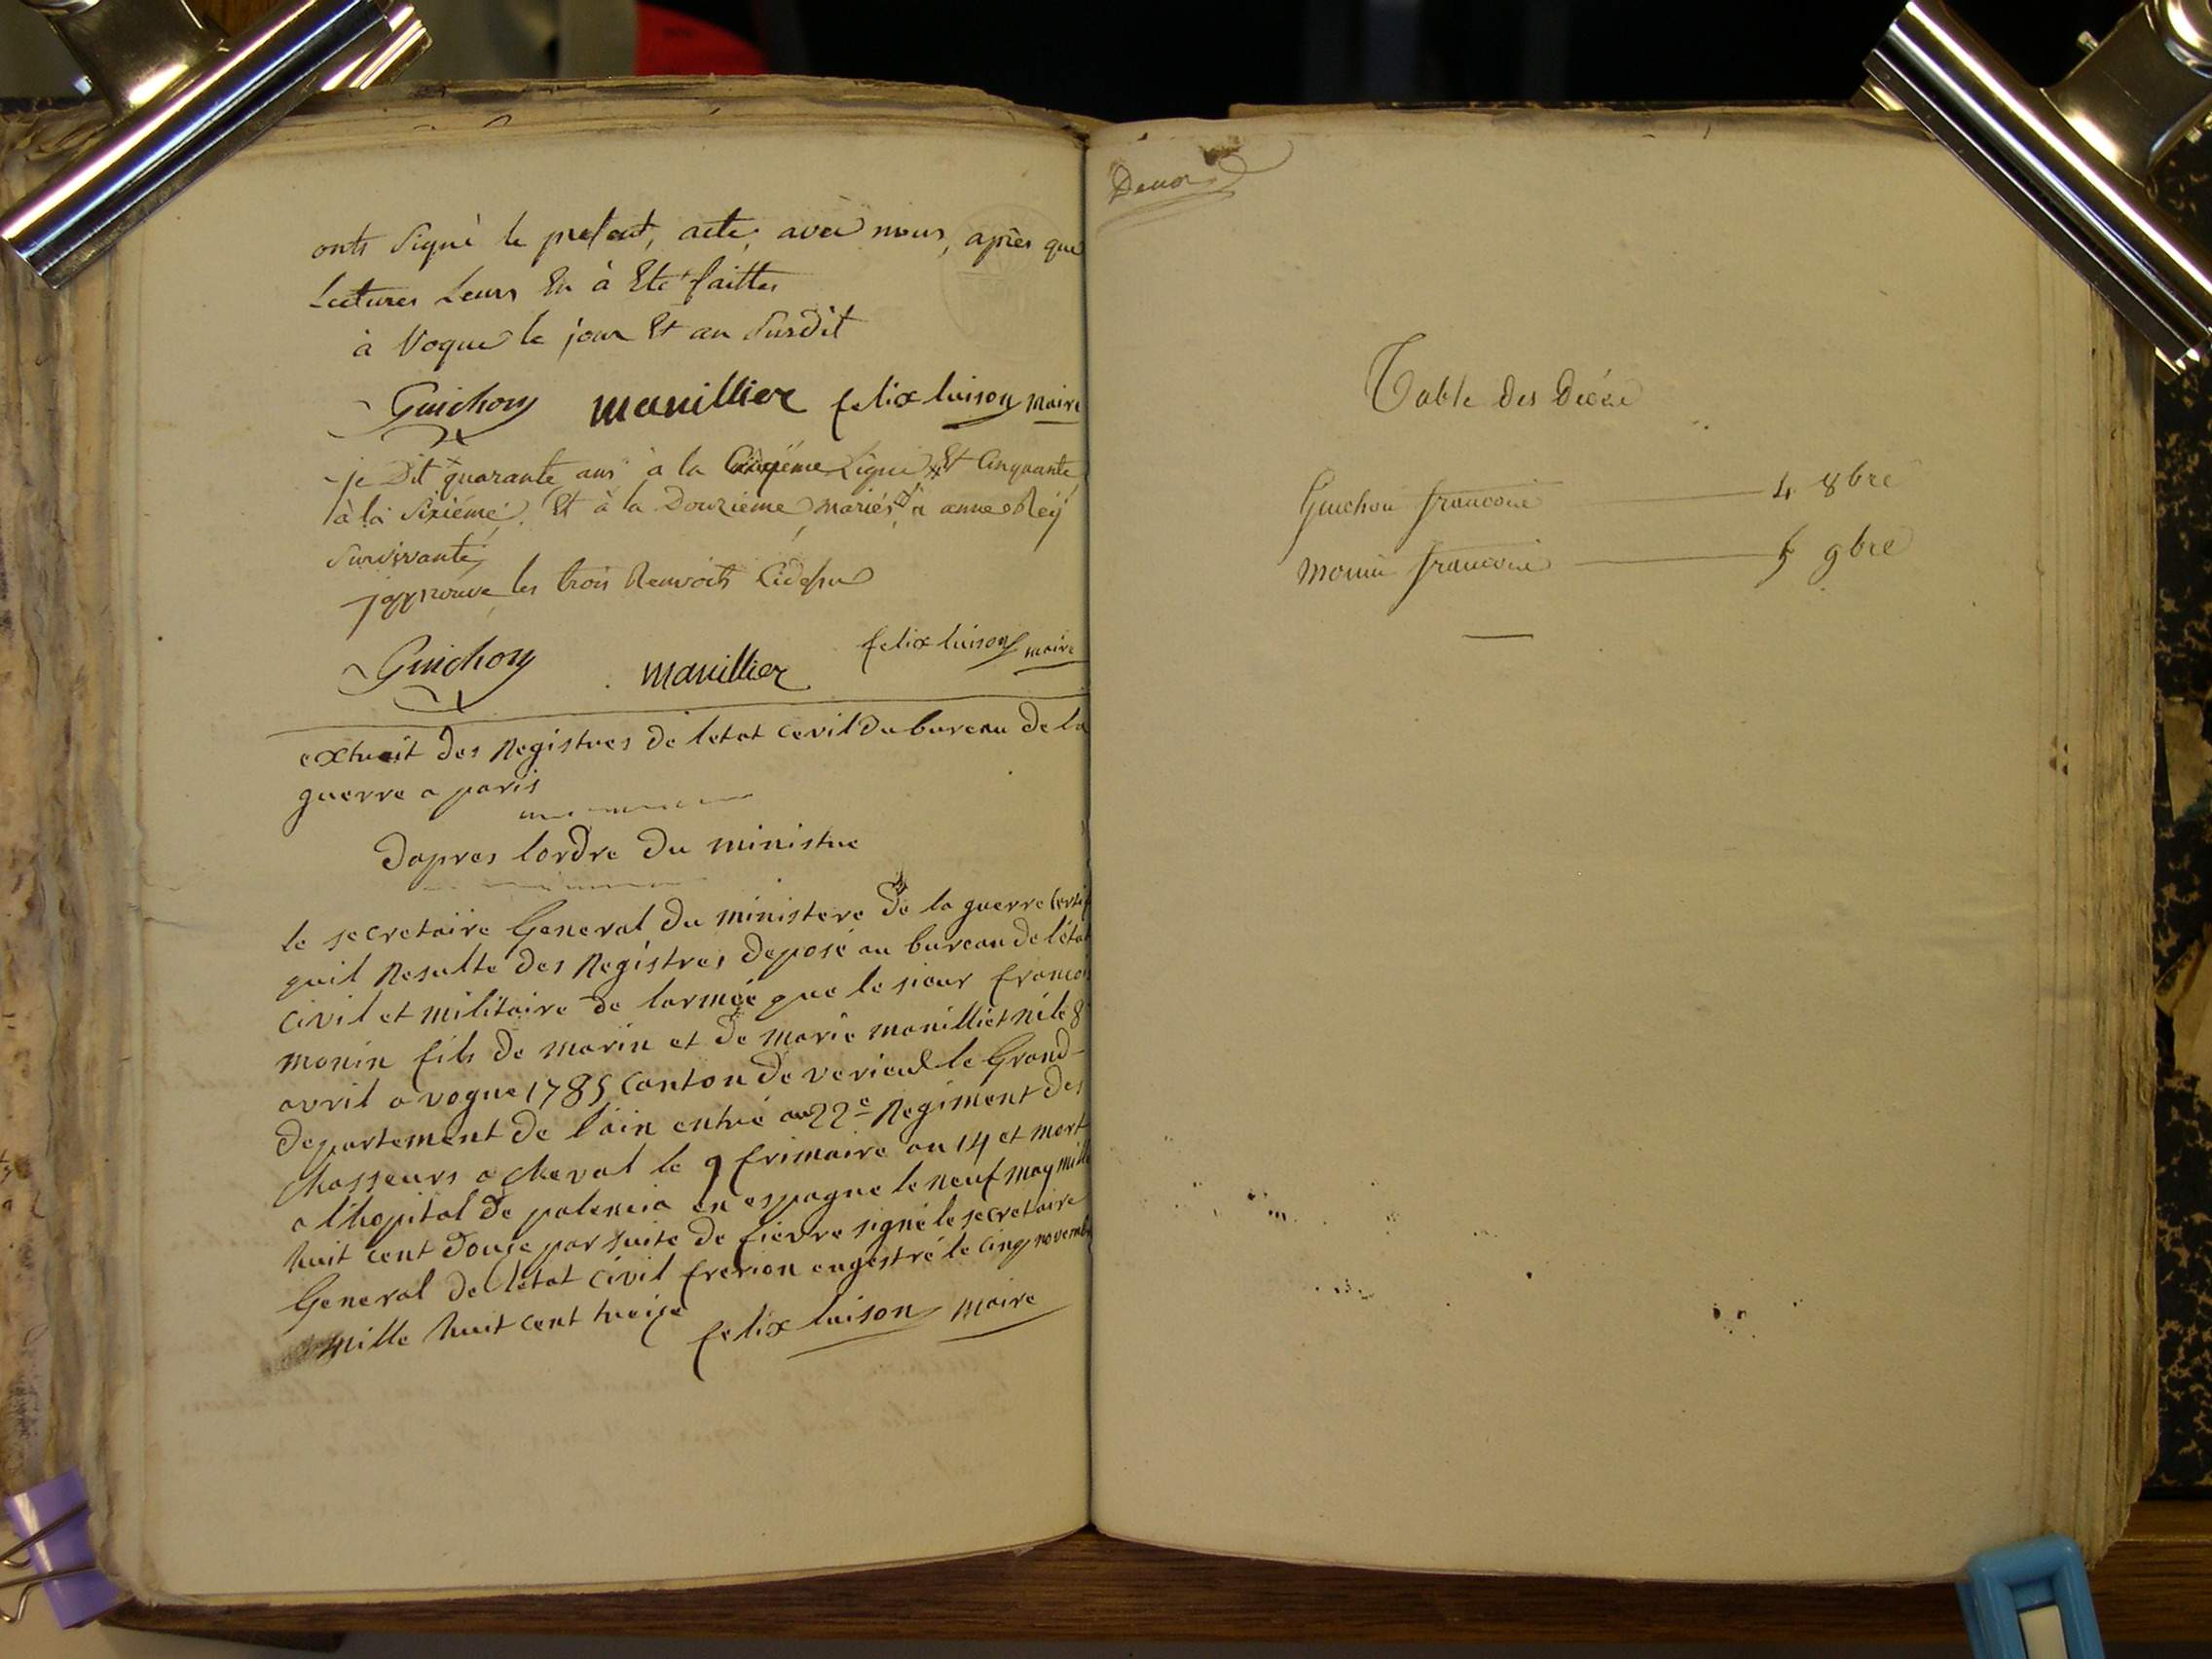 onts signé le present, acte, avec nous, après que
Lectures Leurs En à Eté faittes
à Vogue le jour Et an Susdit
Guichon manillier felix luison maire
je Dit quarante ans à la Ligne Et Cinquante
à la Sixiéme, Et à la Douzieme mariés à anne Rey
Survivante
japprouve les trois Renvoits Cidesus
Guichon manillier felix luison maire
extrait des Registres de letat cevil du bureau de la
guerre a paris
Dapres lordre Du ministre
le secretaire General Du ministere De la guerre Certif
quil Resulte des Registres deposé au bureau de létat
Civil et militaire de larmée que le sieur francoi
monin fils de marin et de marie manilliet né le 8
avril a vogue 1785 Canton de verieul le Grand
Departement de l'ain entré au 22e Regiment des
Chasseurs a cheval le 9 frimaire an 14 et mort
a lhopital de palencia en espagne le neuf may mille
huit cent douze par suite de fievre signé le secretaire
General de letat Civil frerion engestré le cinq novembr
mille huit cent treize felix luison maire
Table des Décée
Guichon francoise 4 8bre
monin francoie 5 9bre